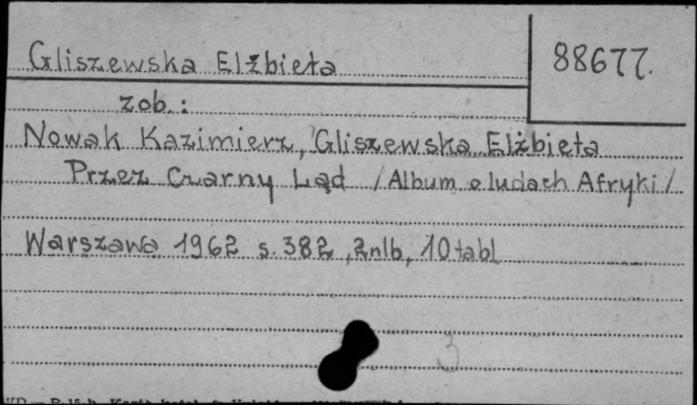 Gliszewska Elżbieta
88677.
zob.:
Nowak Kazimierz, Gliszewska Elżbieta
Przez Czarny Ląd /Album o ludach Afryki/
Warszawa 1962 s. 382, 2nlb, 10 tabl
3